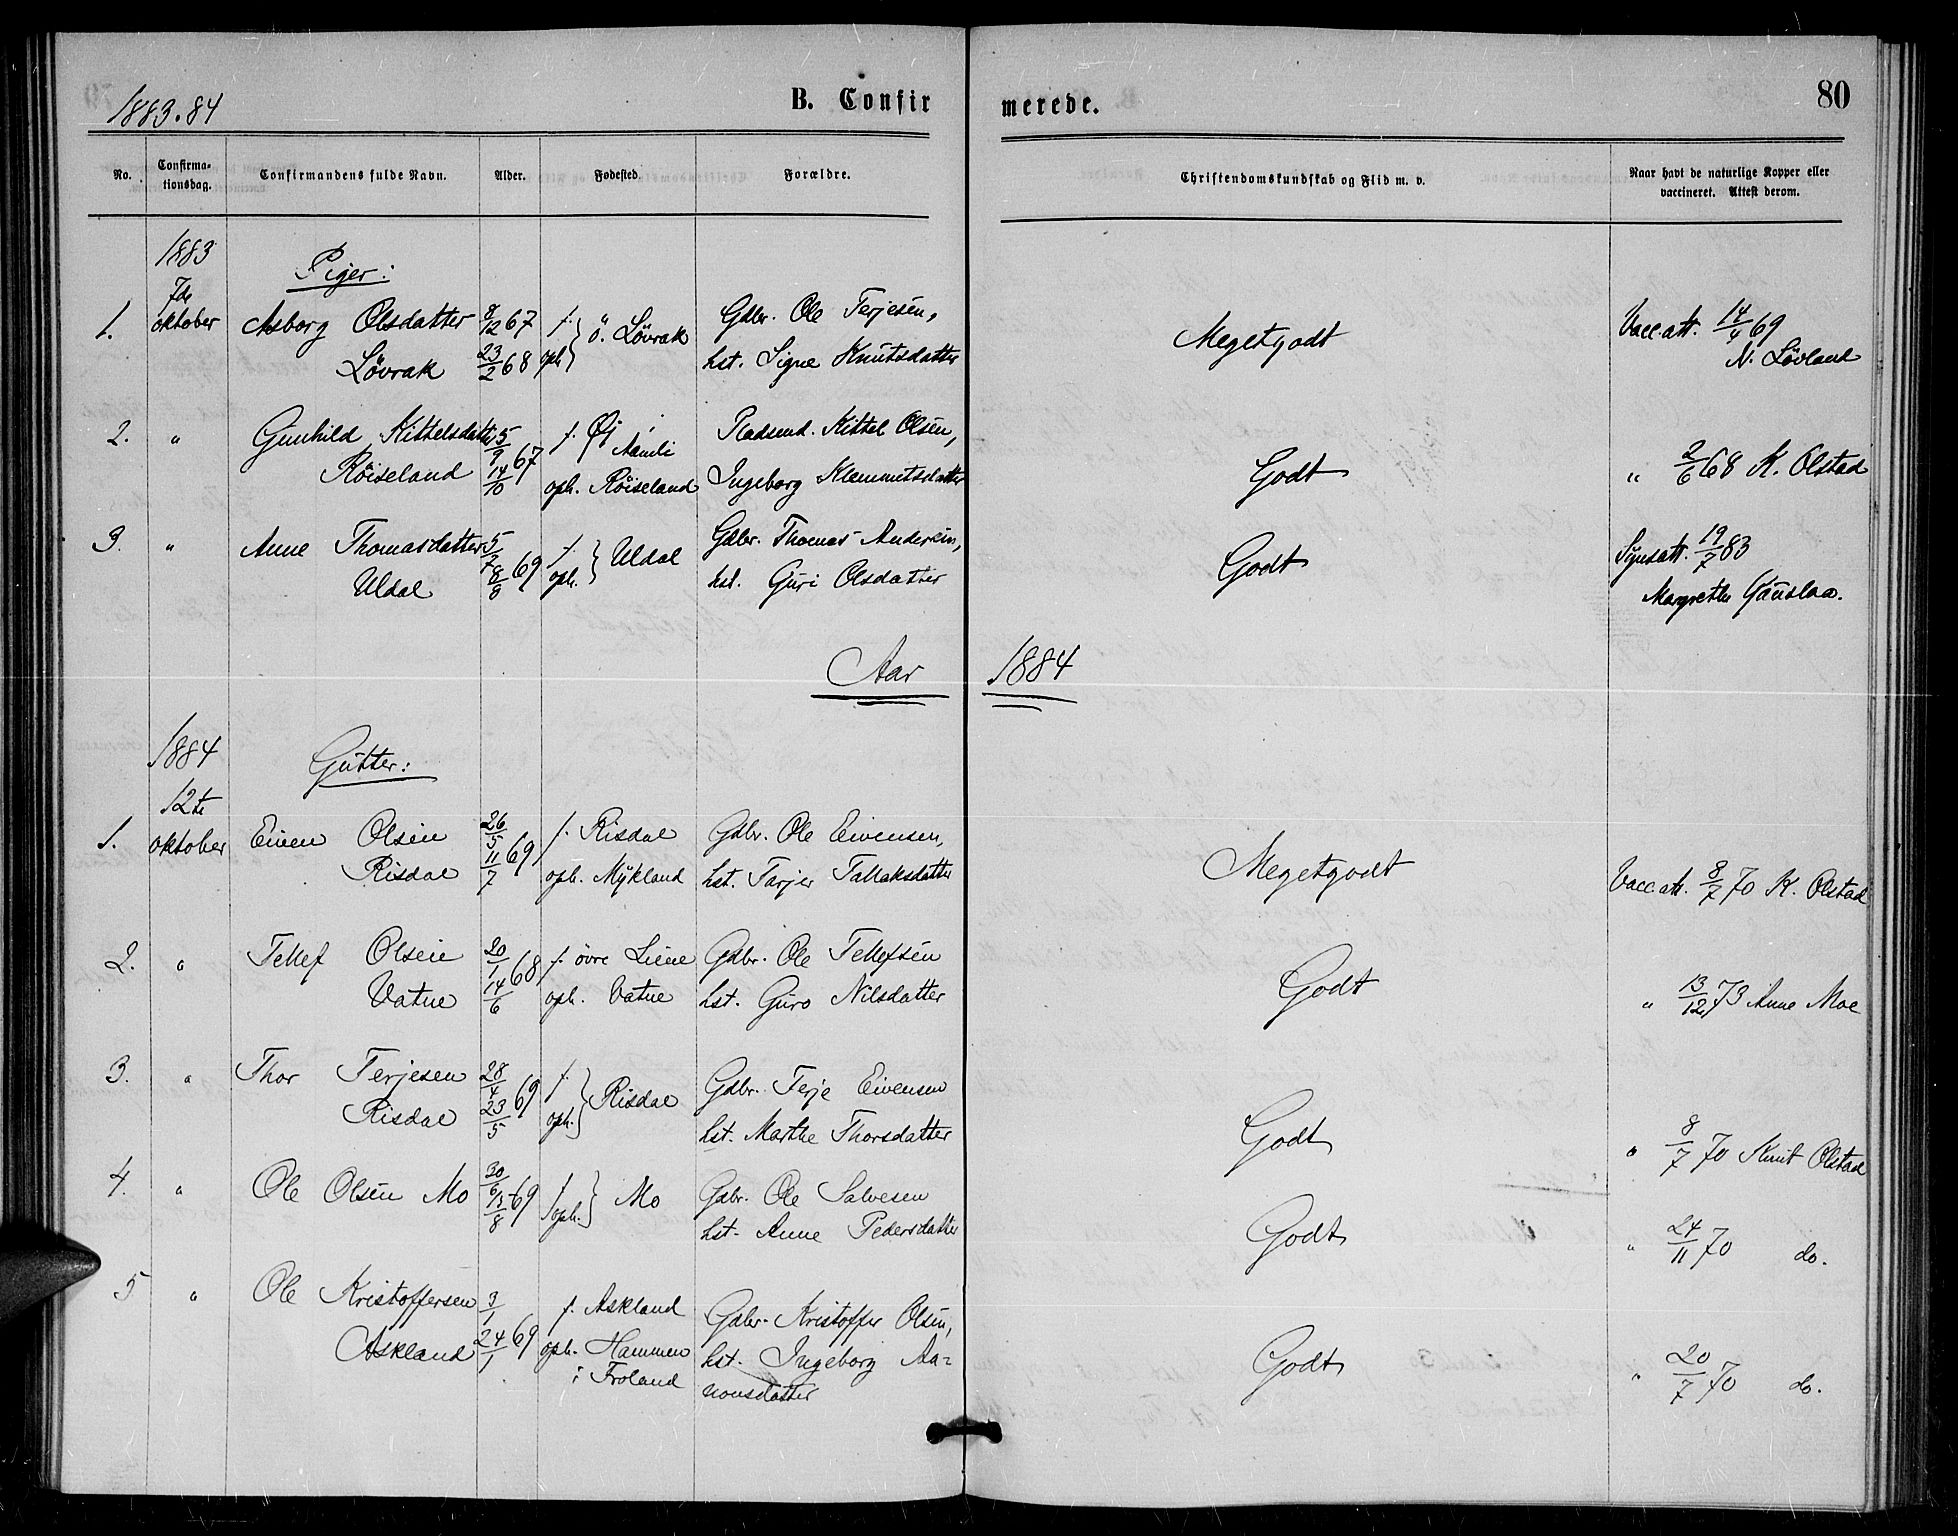 1883.84
B. Confirmerede.
80
No.
Confirmationsdag.
Confirmandens fulde Navn.
Alder.
Fødested.
Forældre.
Christendomskundskab og Flid m. v.
Naar havt de naturlige Kopper eller vaccineret. Attest derom.
1883
Piger:
7de
1. oktober Asborg Olsdatter 8/12 67 f. } ö. Lövrak Gdbr. Ole Terjesen, Megetgodt Vacc att. 14/4 69
Lövrak 23/2 68 oph. hst. Signe Knutsdatter N. Lövland
2. " Gunhild Kittelsdatter 5/9 67 f. Öi, Aamli Pladsmd. Kittel Olsen, Godt " 2/6 68 K. Olstad
Röiseland 14/10 oph. Röiseland Ingeborg Klemmetsdatter
3. " Anne Thomasdatter 5/7 69 f. } Uldal Gdbr. Thomas Andersen, Godt Synsatt. 19/7 83
Uldal 8/8 oph. hst. Guri Olsdatter Margrethe Gauslaa.
Aar 1884
1884
Gutter:
12te
1. oktober Eiven Olsen 26/5 69 f. Risdal Gdbr. Ole Eivensen, Megetgodt Vacc att. 8/7 70 K. Olstad
Risdal 11/7 oph. Mykland hst. Tarjer Tallaksdatter
2. " Tellef Olsen 20/1 68 f. övre Liene Gdbr. Ole Tellefsen Godt " 13/12 73 Anne Moe
Vatne 14/6 oph. Vatne hst. Guro Nilsdatter
3. " Thor Terjesen 28/4 69 f. } Risdal Gdbr. Terje Eivensen Godt " 8/7 70 Knut Olstad
Risdal 23/5 oph. hst. Marthe Thorsdatter
4. " Ole Olsen Mo 30/6 69 f. } Mo Gdbr. Ole Salvesen Godt " 24/11 70 do.
15/8 oph. hst. Anne Pedersdatter
5 " Ole Kristoffersen 3/1 69 f. Askland Gdbr. Kristoffer Olsen, Godt " 20/7 70 do.
Askland 24/1 oph. Hammen hst. Ingeborg Aa-
i Froland nonsdatter